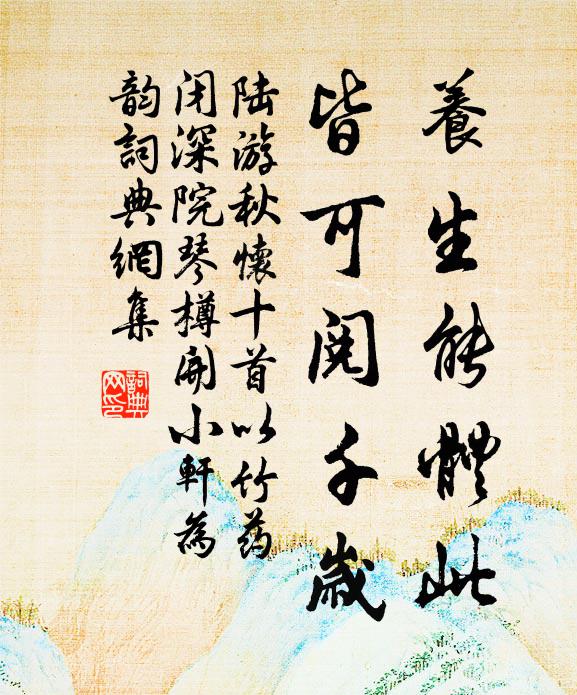 養生能體此
皆可閱千歲
陆游秋懷十首以竹药
闭深院琴樽開小軒為
韵詞典網集
詞典网印